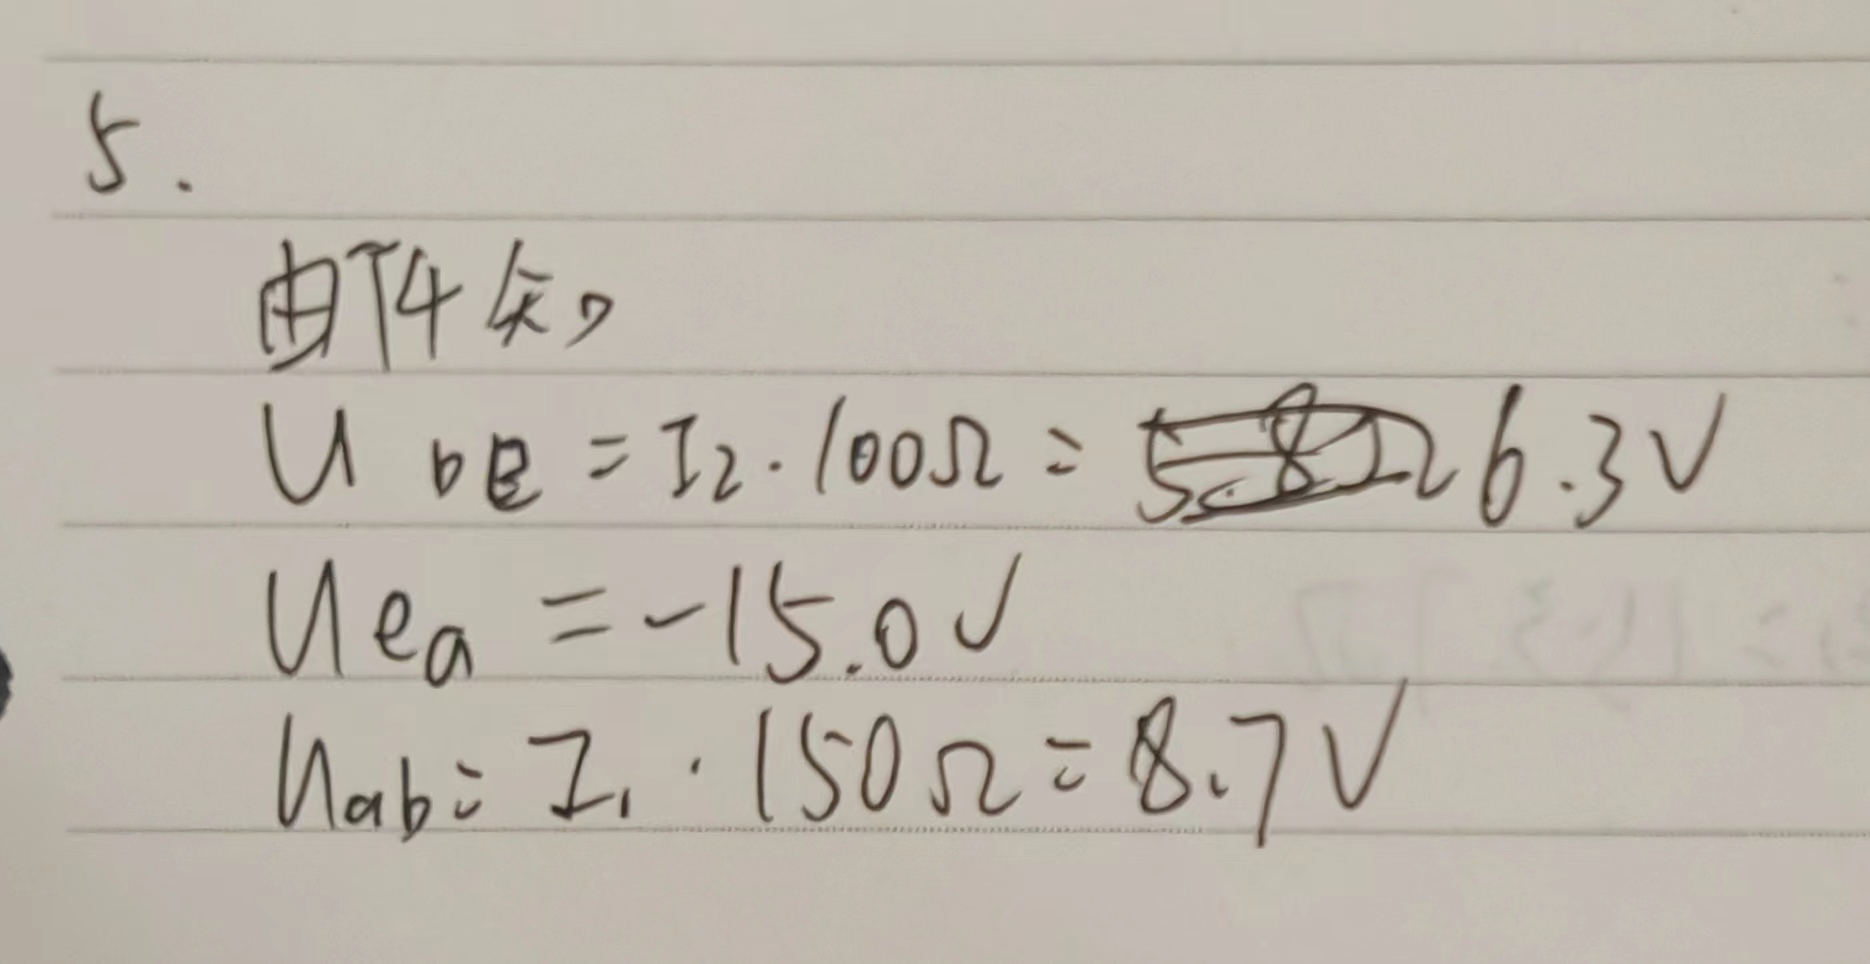 5.
由下4知
U be = I₂·100Ω = 6.3V
Uea = -15.0V
Uab = I₁·150Ω = 8.7V